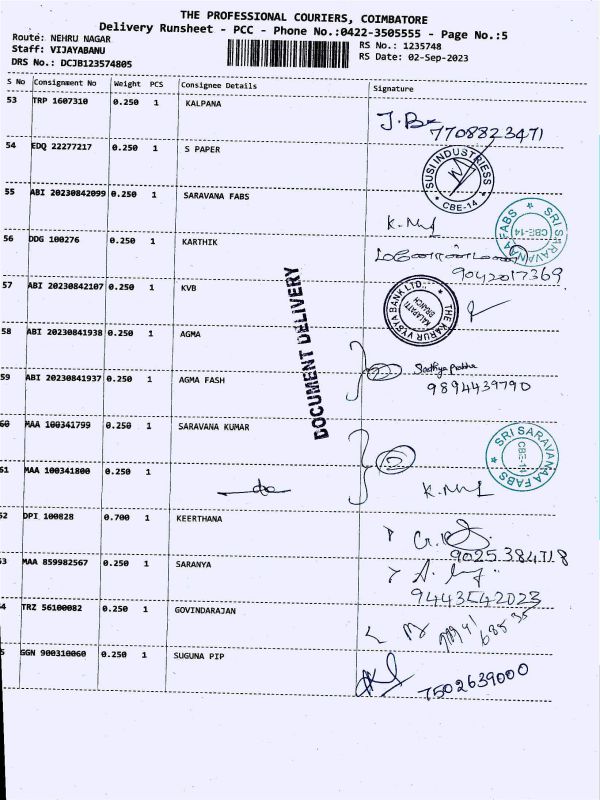 THE PROFESSIONAL COURIERS, COIMBATORE
Delivery Runsheet - PCC - Phone No.:0422-3505555 - Page No.:5
Route: NEHRU NAGAR
Staff: VIJAYABANU RS No.: 1235748
DRS No.: DCJB123574805 RS Date: 02-Sep-2023
S No Consignment No Weight PCS Consignee Details Signature
53 TRP 1607310 0.250 1 KALPANA
7708823471
54 EDQ 22277217 0.250 1 S PAPER
SUSI INDUSTRIESS
CBE-14
55 ABI 20230842099 0.250 1 SARAVANA FABS
SRI SARAVANAA FABS
CBE-14
56 DDG 100276 0.250 1 KARTHIK
9042017369
57 ABI 20230842107 0.250 1 KVB
THE KARUR VYSYA BANK LTD.,
KALAPATTI
BRANCH
DOCUMENT DELIVERY
58 ABI 20230841938 0.250 1 AGMA
Sadhya prabha
59 ABI 20230841937 0.250 1 AGMA FASH
9894439790
60 MAA 100341799 0.250 1 SARAVANA KUMAR
SRI SARAVANAA FABS
CBE-14
61 MAA 100341800 0.250 1
do
62 DPI 100828 0.700 1 KEERTHANA
9025384718
63 MAA 859982567 0.250 1 SARANYA
9443542023
64 TRZ 56100082 0.250 1 GOVINDARAJAN
65 GGN 900310060 0.250 1 SUGUNA PIP
7502639000